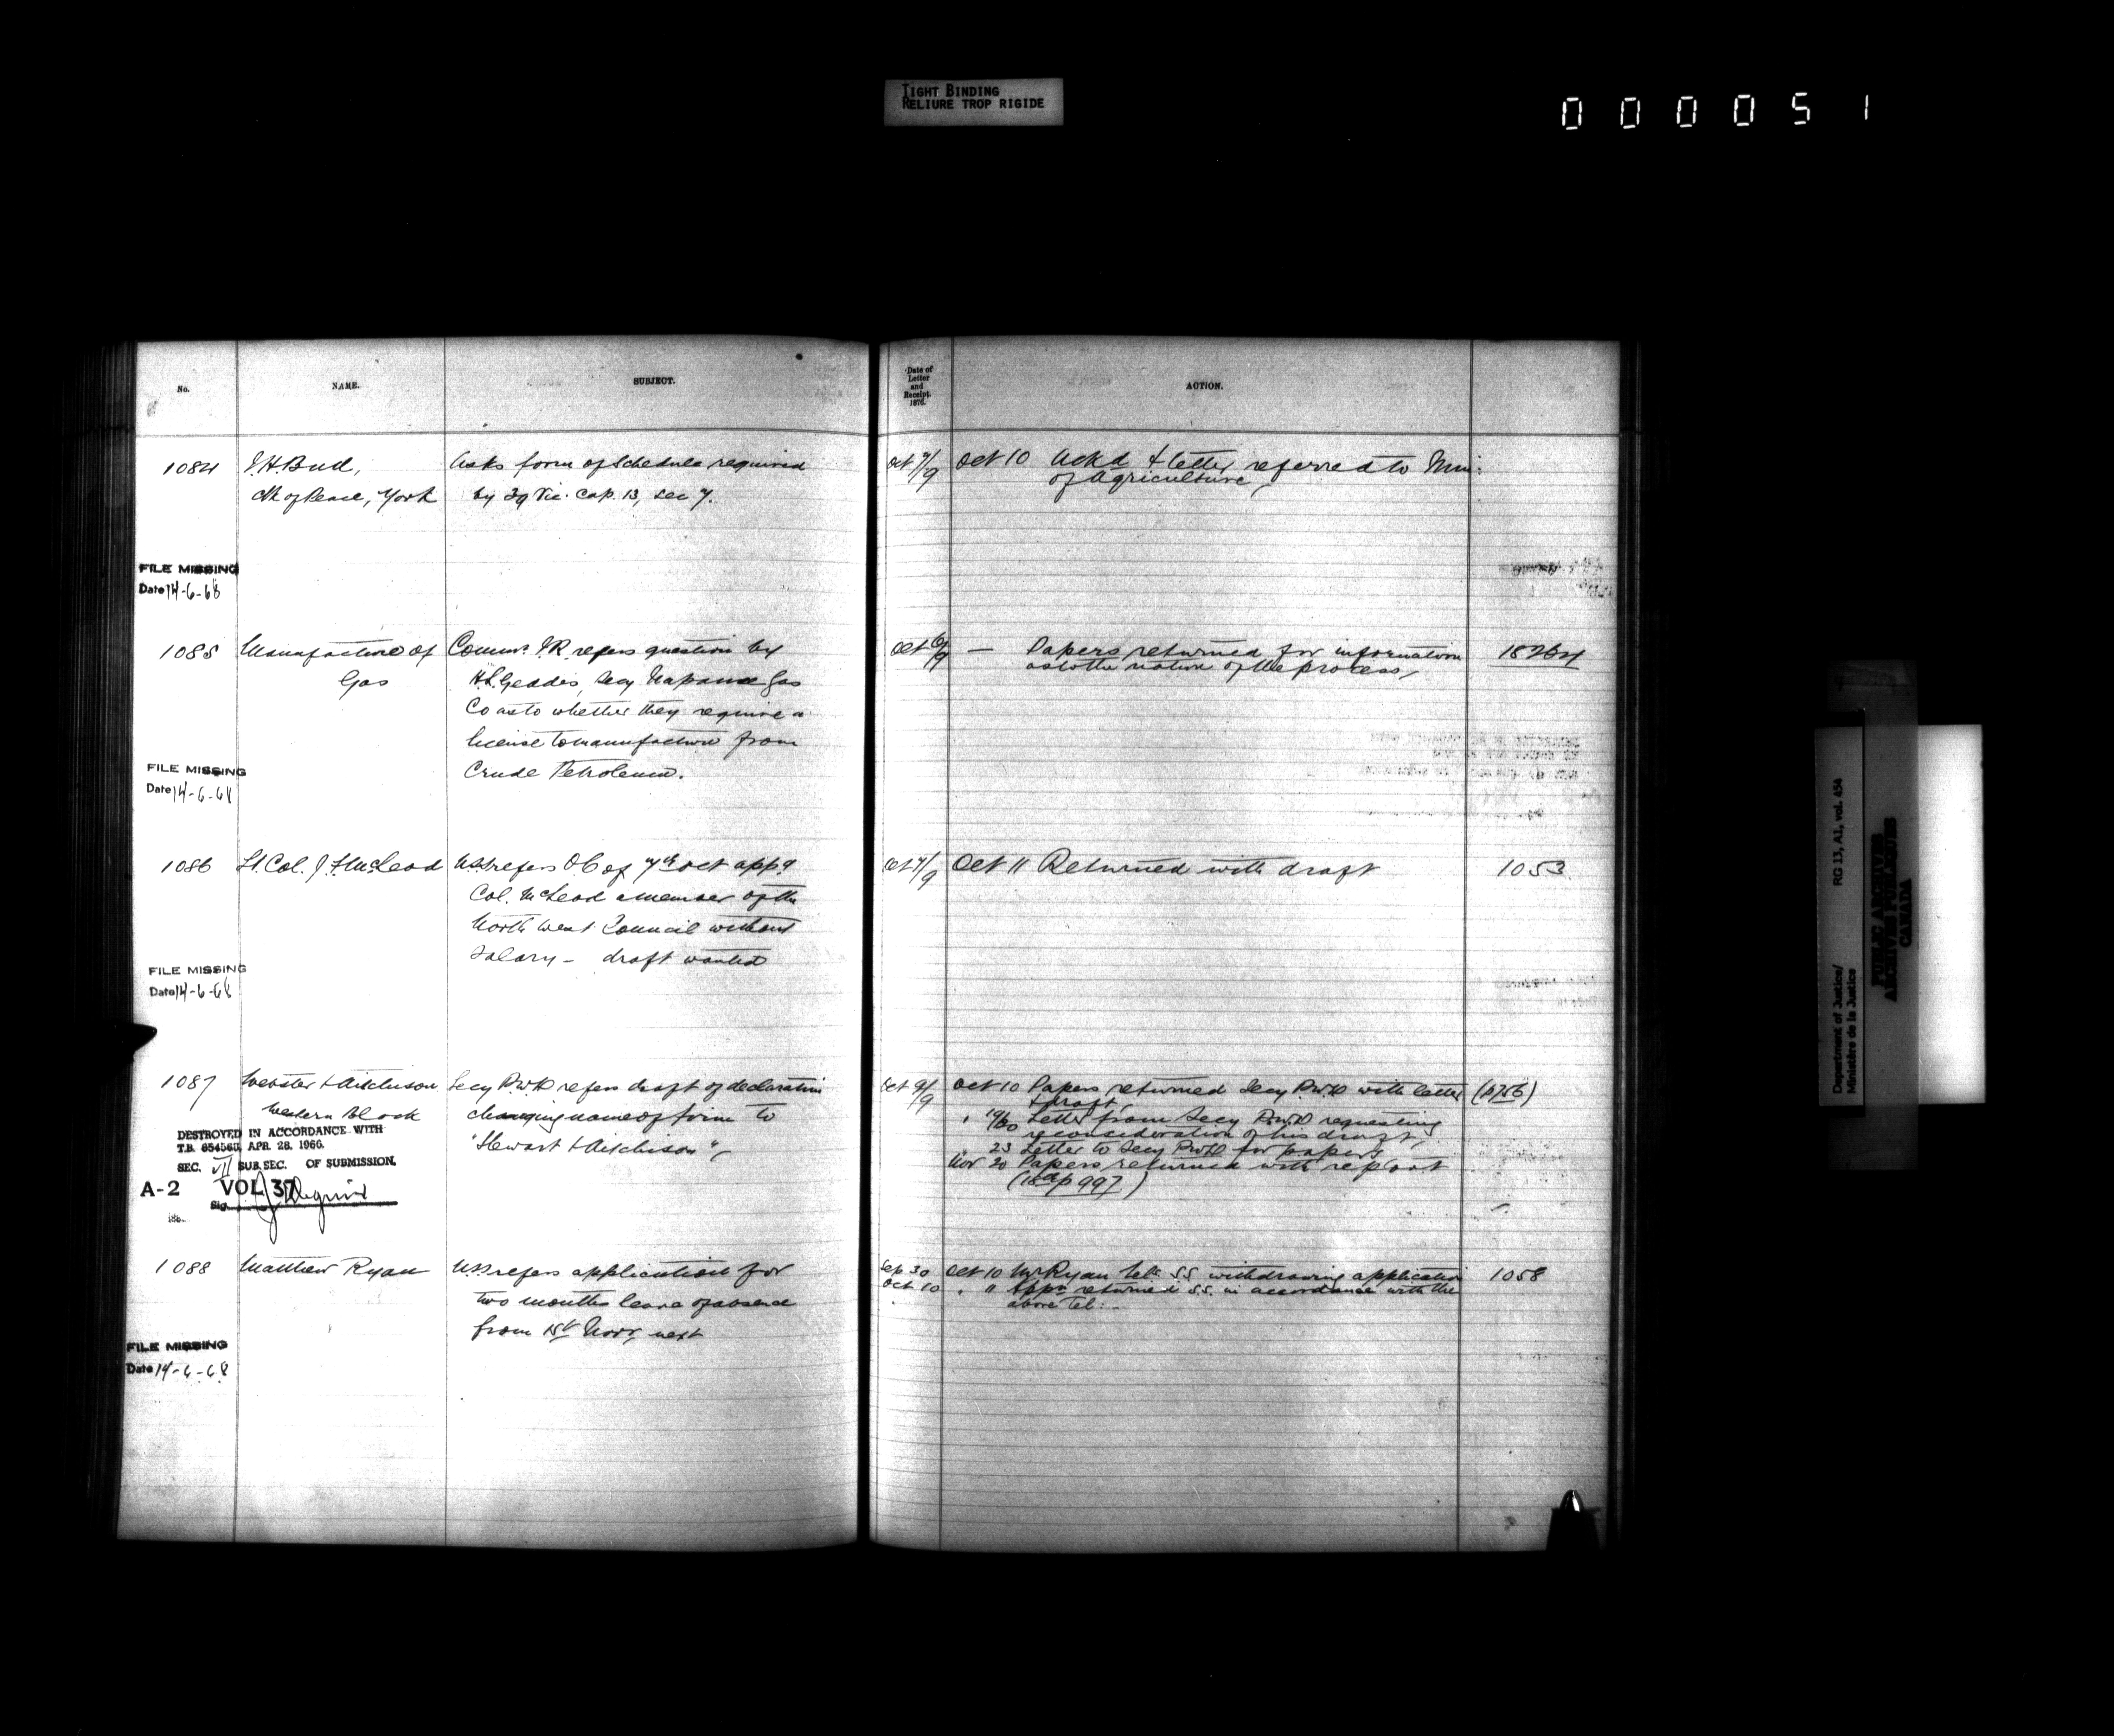 TIGHT BINDING
RELIURE TROP RIGIDE
000051
No. NAME. SUBJECT.
1084 J.H. Bull, Asks form of Schedule required
Clk of Peace, York by 39 Vic. Cap. 13, Sec 7.
FILE MISSING
Date 14-6-68
1085 Manufacture of Comm. I.R. refers question by
Gas H.L. Geddes, Secy Napanee Gas
Co as to whether they require a
license to manufacture from
Crude Petroleum.
FILE MISSING
Date 14-6-68
1086 Lt. Col. J. F. McLeod U.S.S. refers O.C. of 7th Oct appg
Col. McLeod a member of the
North West Council without
Salary – draft wanted
FILE MISSING
Date 14-6-68
1087 Webster & Aitchison Secy P.W.D refers draft of declaration
Western Block changing name of firm to
"Stewart & Aitchison",
DESTROYED IN ACCORDANCE WITH
T.B. 654560, APR. 28, 1960.
SEC. VII SUB.SEC. OF SUBMISSION.
A-2 VOL 37
Sig.
1088 Matthew Ryan U.S.S. refers application for
two months leave of absence
from 15th Novr. next
FILE MISSING
Date 14-6-68
Date of
Letter
and
Receipt.
1876.
ACTION.
Oct 7/9 Oct 10 Ackd & letter referred to Min:
of Agriculture,
Oct 6/9 — Papers returned for information 18264
as to the nature of the process,
Oct 7/9 Oct 11 Returned with draft 1053
Oct 9/9 Oct 10 Papers returned Secy P.W.D with letter (p756)
& draft,
" 19/20 Letter from Secy P.W.D requesting
reconsideration of his draft,
" 23 Letter to Secy P.W.D for papers
Nov 20 Papers returned with report
(p 997)
Sep 30 Oct 10 Mr Ryan Tels. S.S. withdrawing application 1058
Oct 10 " " Appn returned S.S. in accordance with the
above Tel: –
Department of Justice/
Ministère de la Justice
RG 13, A1, vol. 454
PUBLIC ARCHIVES
ARCHIVES PUBLIQUES
CANADA